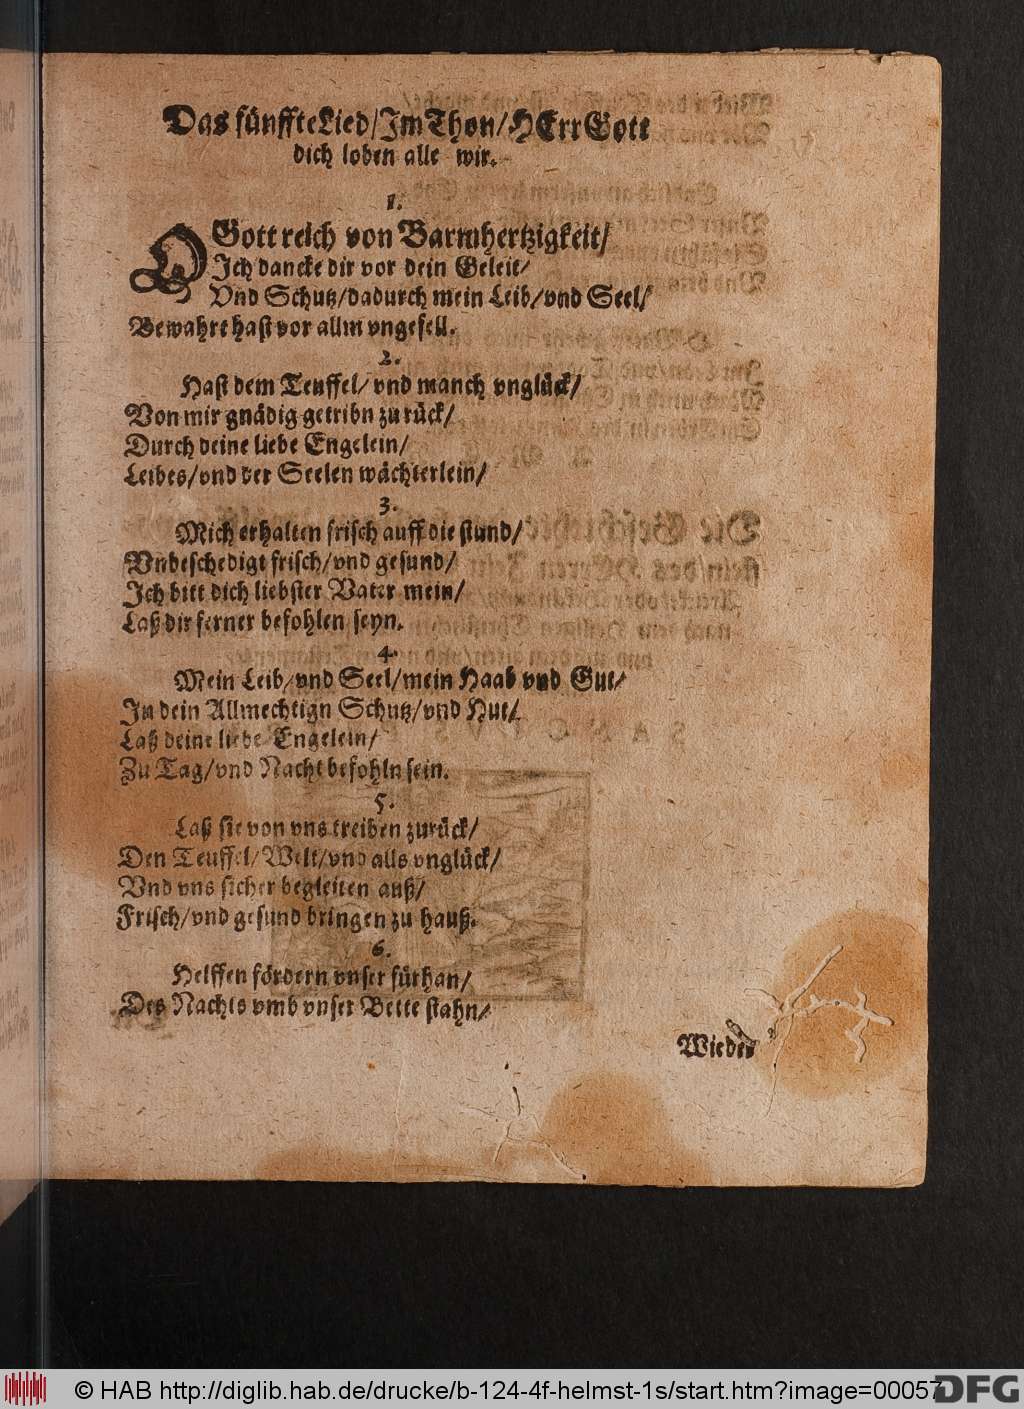 Das fünffte Lied/ Im Thon/ HErr Gott
dich loben alle wir.
1.
O Gott reich von Barmhertzigkeit/
Ich dancke dir vor dein Geleit/
Vnd Schutz/ dadurch mein Leib/ vnd Seel/
Bewahrt hast vor allm vngefell.
2.
Hast dem Teuffel/ vnd manch vnglück/
Von mir gnädig getribn zu rück/
Durch deine liebe Engelein/
Leibes/ vnd der Seelen wächterlein/
3.
Mich erhalten frisch auff die stund/
Vnbeschedigt frisch/ vnd gesund/
Ich bitt dich liebster Vater mein/
Laß dir ferner befohlen seyn.
4.
Mein Leib/ vnd Seel/ mein Haab vnd Gut/
In dein Allmechtign Schutz/ vnd Hut/
Laß deine liebe Engelein/
Zu Tag/ vnd Nacht befohln sein.
5.
Laß sie von vns treiben zurück/
Den Teuffel/ Welt/ vnd alls vnglück/
Vnd vns sicher begleiten auß/
Frisch/ vnd gesund bringen zu hauß.
6.
Helffen fördern vnser fürhan/
Des Nachts vmb vnser Bette stahn/
Wieder
© HAB http://diglib.hab.de/drucke/b-124-4f-helmst-1s/start.htm?image=00057
DFG